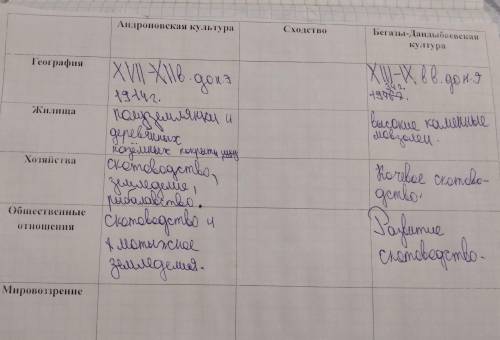 Андроновская культура
Сходство
Бегазы-Дандыбаевская
култура
География
XVII-XII в. до н.э
1914г.
XIII-IX в в. до н.э
Жилища
полуземлянки и
деревянных
высокие каменные
мавзолеи.
Хозяйства
скотоводство,
земледелие,
рыбалавство.
Кочевое скотово-
дство.
Общественные
отношения
скотоводство и
мотыжное
земледелия.
Развитие
скотоводство.
Мировоззрение